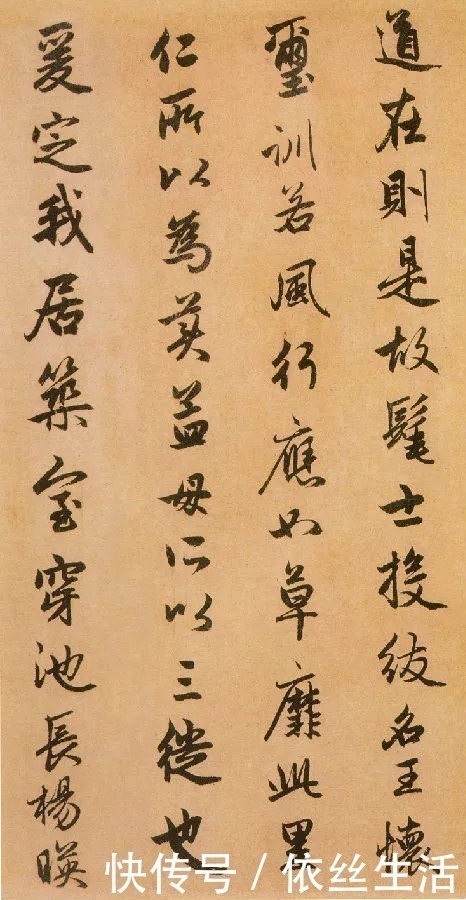 道在則是故髦士投紱名王懷
璽訓若風行應如草靡此里
仁所以為美孟母所以三徙也
爰定我居築室穿池長楊暎
快传号 / 依丝生活